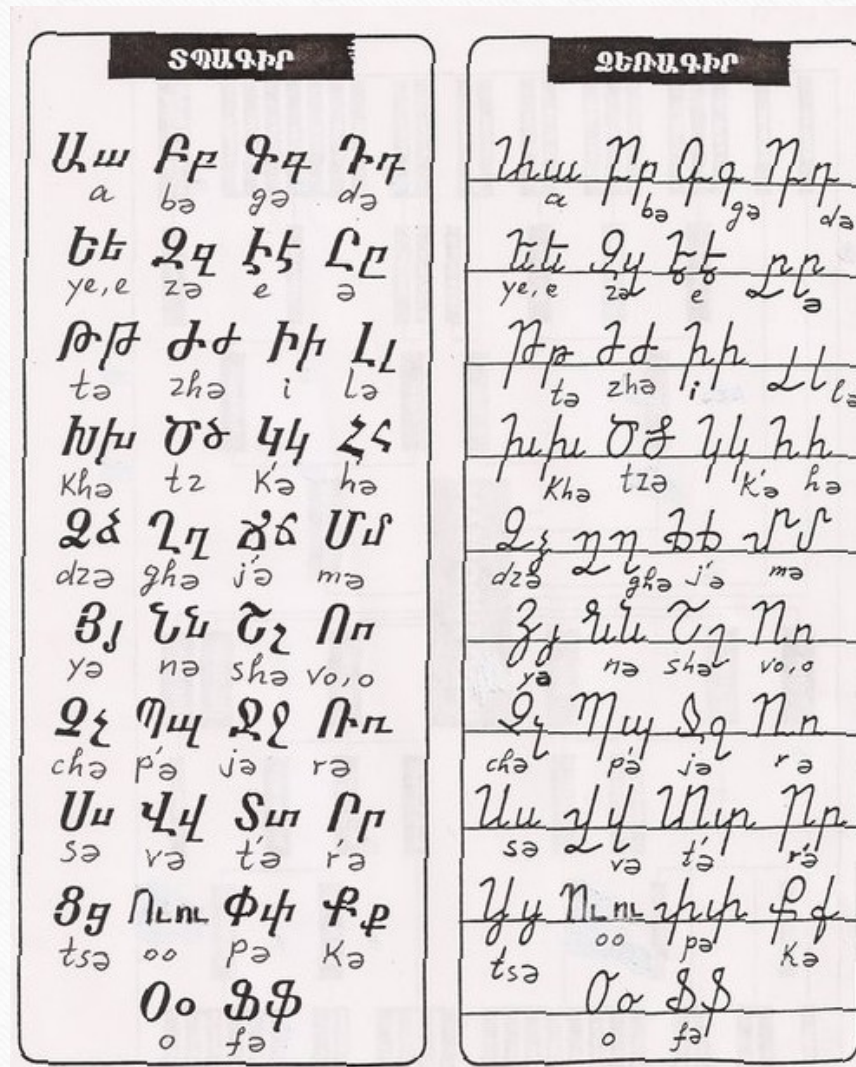 ՏՊԱԳԻՐ
Աա Բբ Գգ Դդ
a bə gə də
Եե Զզ Էէ Ըը
ye,e zə e ə
Թթ Ժժ Իի Լլ
tə zhə i lə
Խխ Ծծ Կկ Հհ
khə tz k'ə hə
Ձձ Ղղ Ճճ Մմ
dzə ghə j'ə mə
Յյ Նն Շշ Ոո
yə nə shə vo,o
Չչ Պպ Ջջ Ռռ
chə p'ə jə rə
Սս Վվ Տտ Րր
sə və t'ə r'ə
Ցց Ուու Փփ Քք
tsə oo pə kə
Օօ Ֆֆ
o fə
ՁԵՌԱԳԻՐ
Աա Բբ Գգ Դդ
a bə gə də
Եե Զզ Էէ Ըը
ye,e zə e ə
Թթ Ժժ Իի Լլ
tə zhə i lə
Խխ Ծծ Կկ Հհ
khə tzə k'ə hə
Ձձ Ղղ Ճճ Մմ
dzə ghə j'ə mə
Յյ Նն Շշ Ոո
yə nə shə vo,o
Չչ Պպ Ջջ Ռռ
chə p'ə jə rə
Սս Վվ Տտ Րր
sə və t'ə r'ə
Ցց Ուու Փփ Քք
tsə oo pə kə
Օօ Ֆֆ
o fə